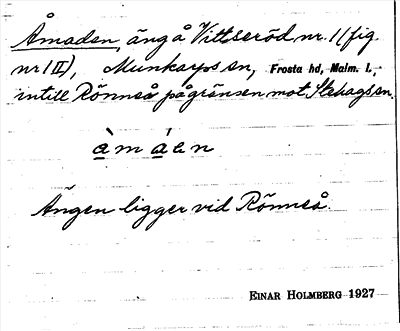 Åmaden, äng å Vittseröd nr. 1 (fig.
nr 1 II), Munkarps sn, Frosta hd, Malm. l.,
intill Rönneå på gränsen mot Stehags sn.
Ängen ligger vid Rönneå.
EINAR HOLMBERG 1927